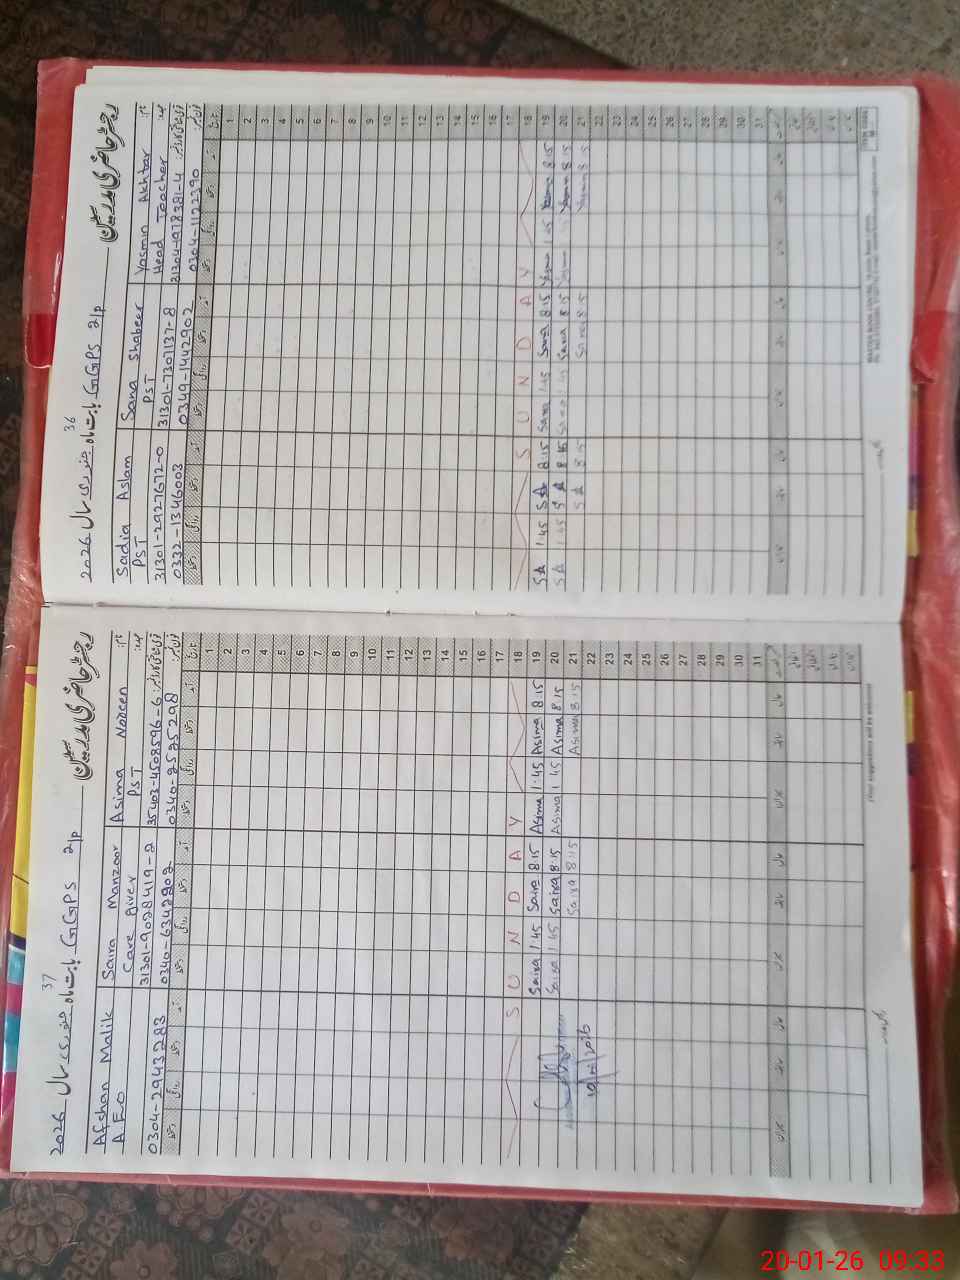 36
رجسٹر حاضری مدرسین GGPS 2/P بابت ماہ جنوری سال 2026
Sadia Aslam Sana Shabeer Yasmin Akhtar نام:
PST PST Head Teacher عہدہ:
31301-2927672-0 31301-7307137-8 31304-1978381-4
0332-1346003 0349-1442902 0304-1122390
آمد دستخط روانگی دستخط تاریخ
1
2
3
4
5
6
7
8
9
10
11
12
13
14
15
16
17
S U N D A Y 18
SA 1:45 SA 8:15 Sana 1:45 Sana 8:15 Yasmin 1:45 Yasmin 8:15 19
SA 1:45 SA 8:15 Sana 1:45 Sana 8:15 Yasmin Yasmin 8:15 20
SA 8:15 Sana 8:15 Yasmin 8:15 21
22
23
24
25
26
27
28
29
30
31
37
رجسٹر حاضری مدرسین GGPS 2/P بابت ماہ جنوری سال 2026
Afshan Malik Saira Manzoor Asima Noreen نام:
AEO Care giver PST عہدہ:
31301-9028419-2 35403-4508596-6
0304-2943283 0340-6342902 0340-2525298
آمد دستخط روانگی دستخط تاریخ
1
2
3
4
5
6
7
8
9
10
11
12
13
14
15
16
17
S U N D A Y 18
Saira 1:45 Saira 8:15 Asima 1:45 Asima 8:15 19
Saira 1:45 Saira 8:15 Asima 1:45 Asima 8:15 20
Saira 8:15 Asima 8:15 21
22
23
24
25
26
27
28
29
30
31
20-01-26 09:33